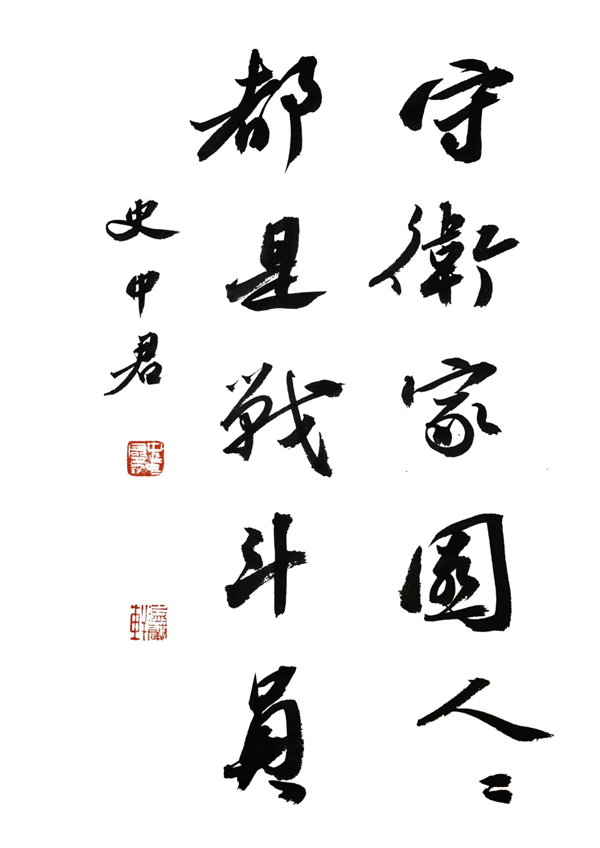 守衛家園人〻
都是戰斗員
史中君